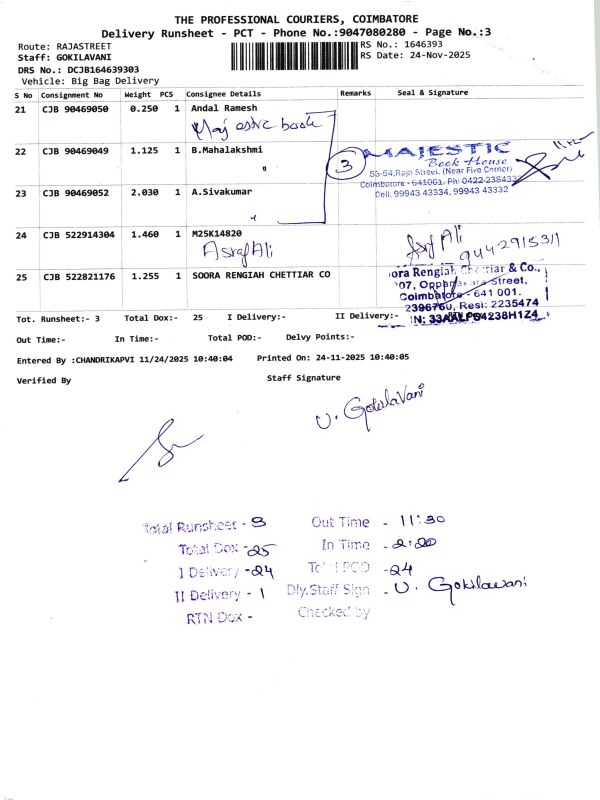 THE PROFESSIONAL COURIERS, COIMBATORE
Delivery Runsheet - PCT - Phone No.:9047080280 - Page No.:3
Route: RAJASTREET
RS No.: 1646393
Staff: GOKILAVANI
RS Date: 24-Nov-2025
DRS No.: DCJB164639303
Vehicle: Big Bag Delivery
S No Consignment No Weight PCS Consignee Details Remarks Seal & Signature
21 CJB 90469050 0.250 1 Andal Ramesh
Majestic book
22 CJB 90469049 1.125 1 B.Mahalakshmi
3
MAJESTIC
Book House
55-54,Raja Street, (Near Five Corner)
Coimbatore - 641001. Ph: 0422-2384333
Cell: 99943 43334, 99943 43332
23 CJB 90469052 2.030 1 A.Sivakumar
24 CJB 522914304 1.460 1 M25K14820
Asraf Ali
Asraf Ali
9442915311
25 CJB 522821176 1.255 1 SOORA RENGIAH CHETTIAR CO
oora Rengiah Chettiar & Co.,
207, Oppanakara Street,
Coimbatore - 641 001.
2396760, Resi: 2235474
N: 33AALPS4238H1Z4
Tot. Runsheet:- 3 Total Dox:- 25 I Delivery:- II Delivery:-
Out Time:- In Time:- Total POD:- Delvy Points:-
Entered By :CHANDRIKAPVI 11/24/2025 10:40:04 Printed On: 24-11-2025 10:40:05
Verified By Staff Signature
U. Gokilavani
Total Runsheet - 3 Out Time - 11:30
Total Dox - 25 In Time - 2:20
I Delivery - 24 Total POD - 24
II Delivery - 1 Dly.Staff Sign - U. Gokilavani
RTN Dox - Checked by